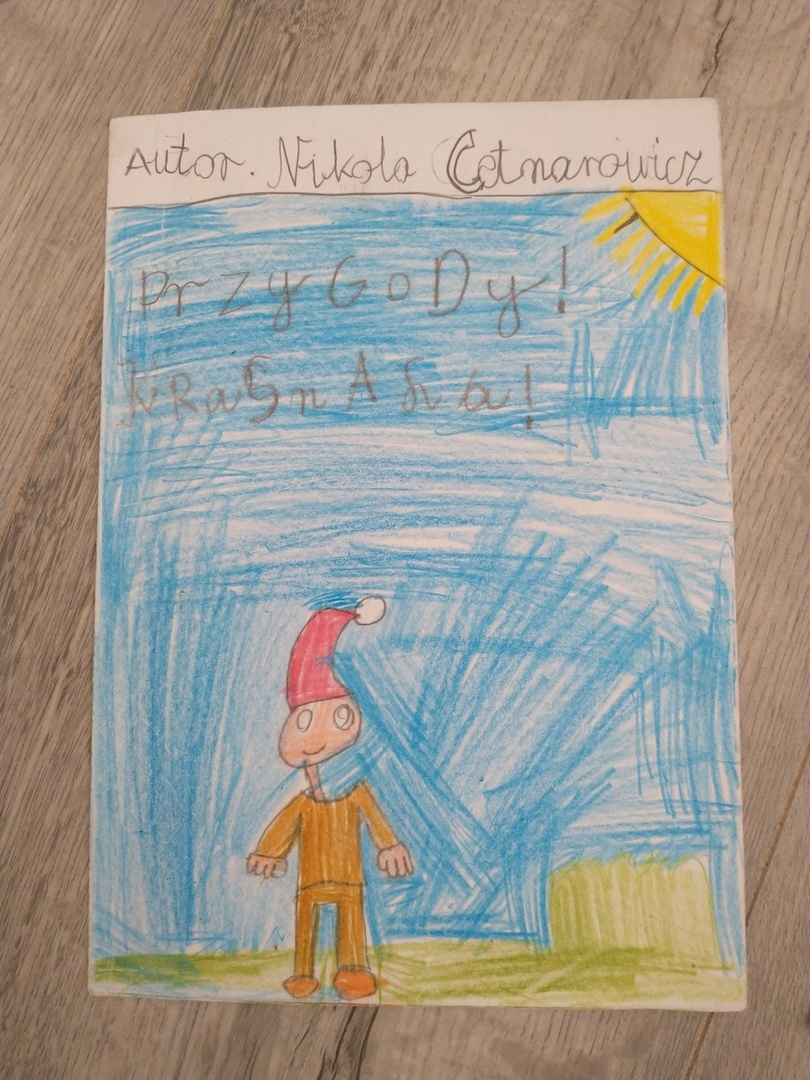 Autor. Nikola Cetnarowicz
PrzyGoDy!
KRaSnAla!